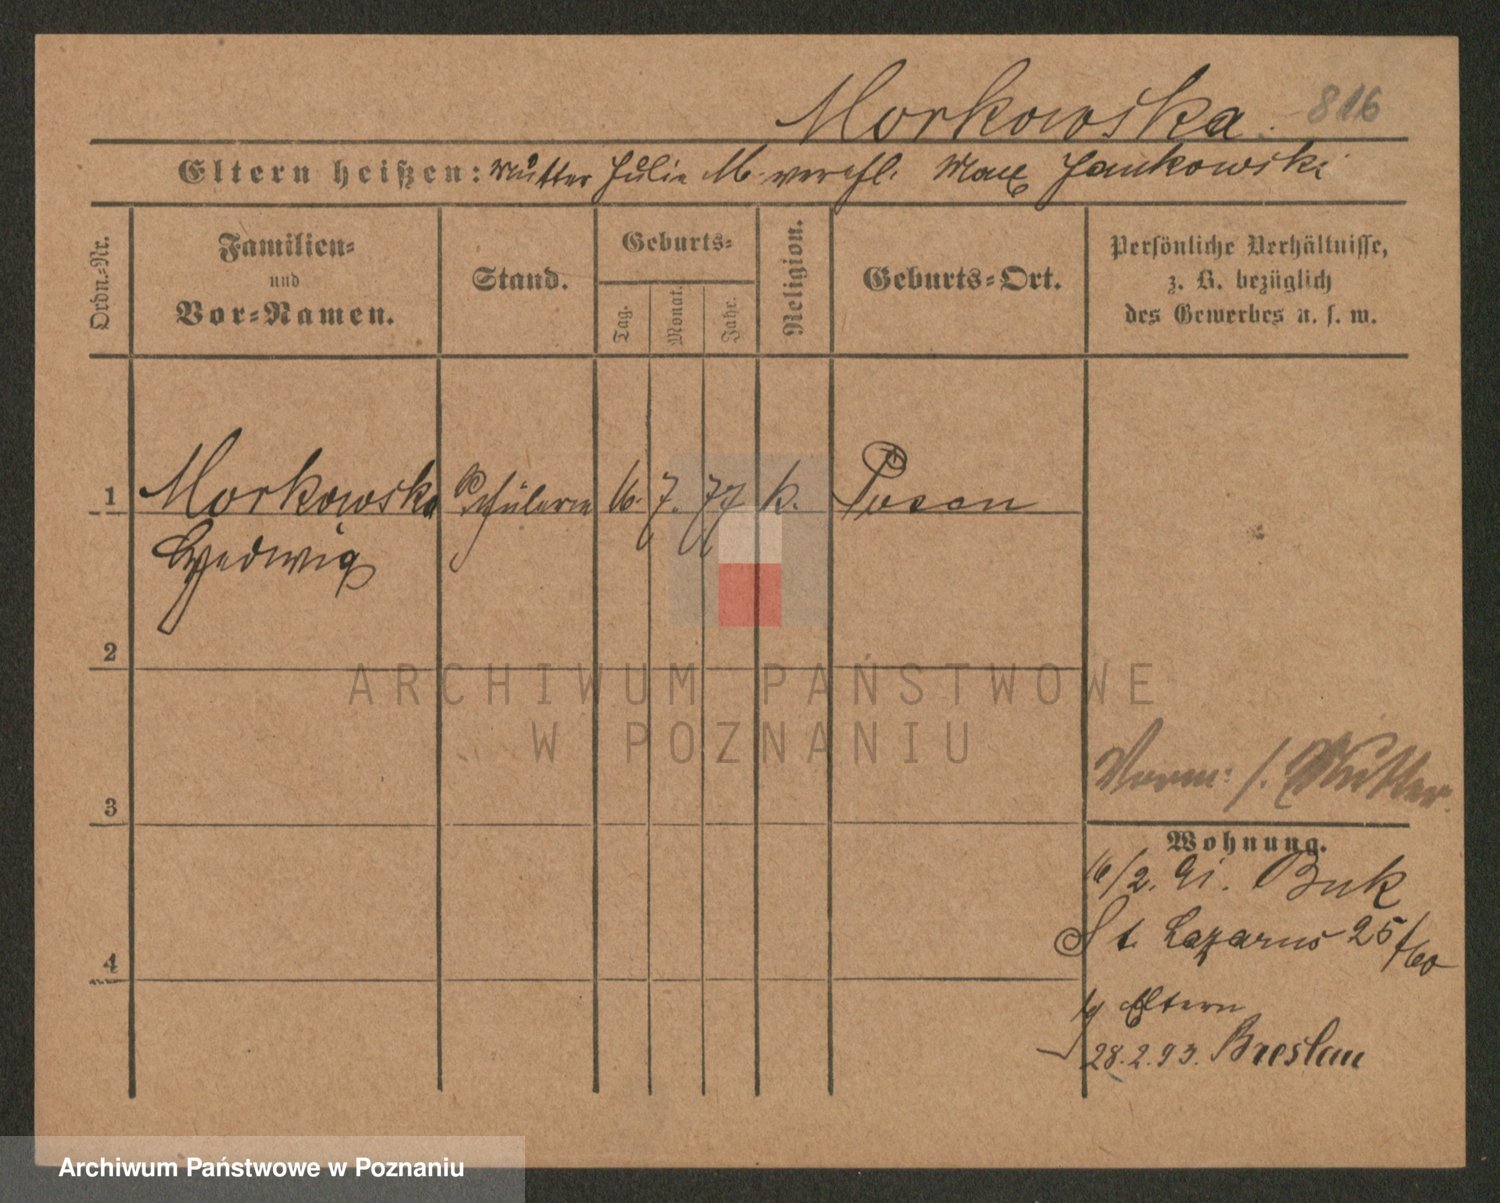 Morkowska. 816
Eltern heißen: Mutter Julie M. verehl. Max Jankowski
Ordn.-Nr.
Familien-
und
Vor-Namen.
Stand.
Geburts-
Tag.
Monat.
Jahr.
Religion.
Geburts-Ort.
Persönliche Verhältnisse,
z. B. bezüglich
des Gewerbes u. s. w.
1 Morkowska Schülerin 16. 7. 77 k. Posen
Hedwig
2
ARCHIWUM PAŃSTWOWE
W POZNANIU
3
Vorm: s. Mutter.
Wohnung.
16/2. 91. Buk
St. Lazarus 25
4
Eltern
28.2.93. Breslau
Archiwum Państwowe w Poznaniu